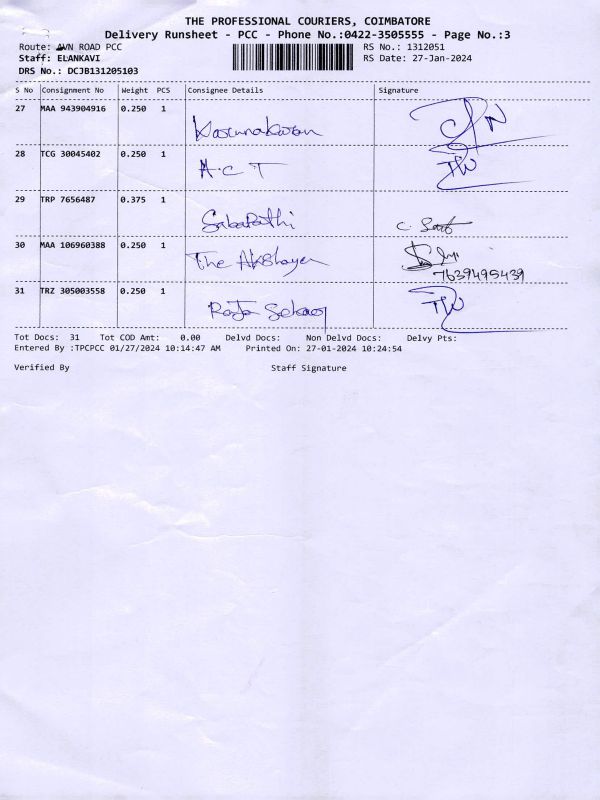 THE PROFESSIONAL COURIERS, COIMBATORE
Delivery Runsheet - PCC - Phone No.:0422-3505555 - Page No.:3
Route: AVN ROAD PCC
RS No.: 1312051
Staff: ELANKAVI
RS Date: 27-Jan-2024
DRS No.: DCJB131205103
S No Consignment No Weight PCS Consignee Details Signature
27 MAA 943904916 0.250 1
Karunakaran
28 TCG 30045402 0.250 1
A.C T
29 TRP 7656487 0.375 1
Sabapathi
30 MAA 106960388 0.250 1
The Akshaya
7639495439
31 TRZ 305003558 0.250 1
Raja Sekar
Tot Docs: 31 Tot COD Amt: 0.00 Delvd Docs: Non Delvd Docs: Delvy Pts:
Entered By :TPCPCC 01/27/2024 10:14:47 AM Printed On: 27-01-2024 10:24:54
Verified By Staff Signature